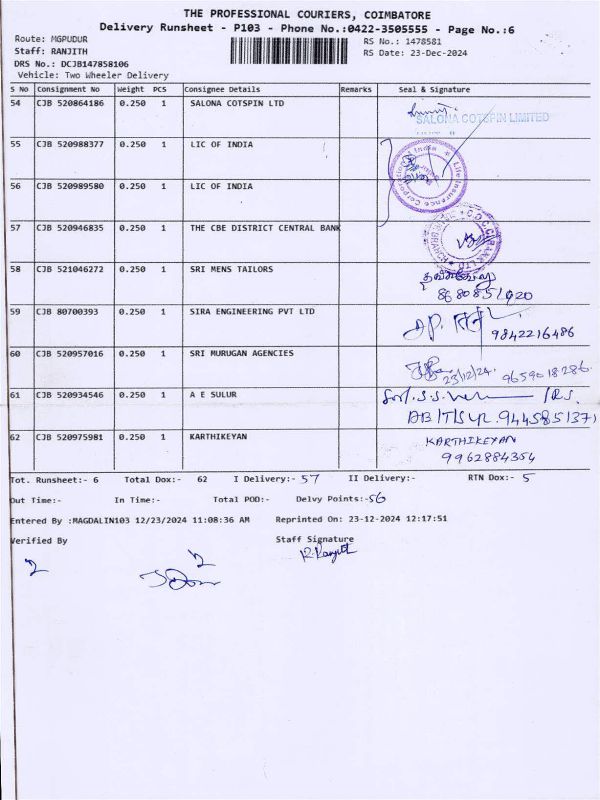 THE PROFESSIONAL COURIERS, COIMBATORE
Delivery Runsheet - P103 - Phone No.:0422-3505555 - Page No.:6
Route: MGPUDUR
RS No.: 1478581
Staff: RANJITH
RS Date: 23-Dec-2024
DRS No.: DCJB147858106
Vehicle: Two Wheeler Delivery
S No Consignment No Weight PCS Consignee Details Remarks Seal & Signature
54 CJB 520864186 0.250 1 SALONA COTSPIN LTD
SALONA COTSPIN LIMITED
55 CJB 520988377 0.250 1 LIC OF INDIA
Life Insurance Corporation of India
56 CJB 520989580 0.250 1 LIC OF INDIA
57 CJB 520946835 0.250 1 THE CBE DISTRICT CENTRAL BANK
58 CJB 521046272 0.250 1 SRI MENS TAILORS
8680851920
59 CJB 80700393 0.250 1 SIRA ENGINEERING PVT LTD
9842216486
60 CJB 520957016 0.250 1 SRI MURUGAN AGENCIES
23/12/24. 9659018286.
61 CJB 520934546 0.250 1 A E SULUR
62 CJB 520975981 0.250 1 KARTHIKEYAN
KARTHIKEYAN
9962884354
Tot. Runsheet:- 6 Total Dox:- 62 I Delivery:- 57 II Delivery:- RTN Dox:- 5
Out Time:- In Time:- Total POD:- Delvy Points:- 56
Entered By :MAGDALIN103 12/23/2024 11:08:36 AM Reprinted On: 23-12-2024 12:17:51
Verified By Staff Signature
R. Ranjith